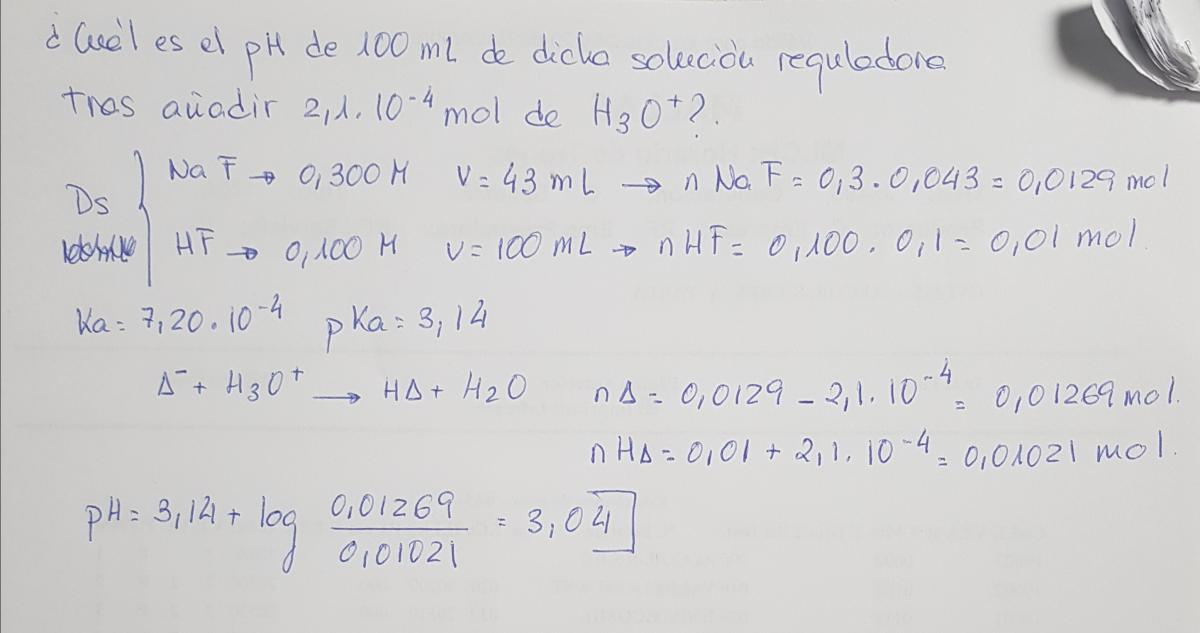 ¿Cuál es el pH de 100 mL de dicha solución reguladora
tras añadir 2,1.10⁻⁴ mol de H3O⁺?
Ds
NaF → 0,300 M V = 43 mL → n NaF = 0,3.0,043 = 0,0129 mol
HF → 0,100 M V = 100 mL → n HF = 0,100.0,1 = 0,01 mol
Ka = 7,20.10⁻⁴ pKa = 3,14
A⁻ + H3O⁺ → HA + H2O n A = 0,0129 - 2,1.10⁻⁴ = 0,01269 mol.
n HA = 0,01 + 2,1.10⁻⁴ = 0,01021 mol.
pH = 3,14 + log 0,01269 / 0,01021 = 3,04